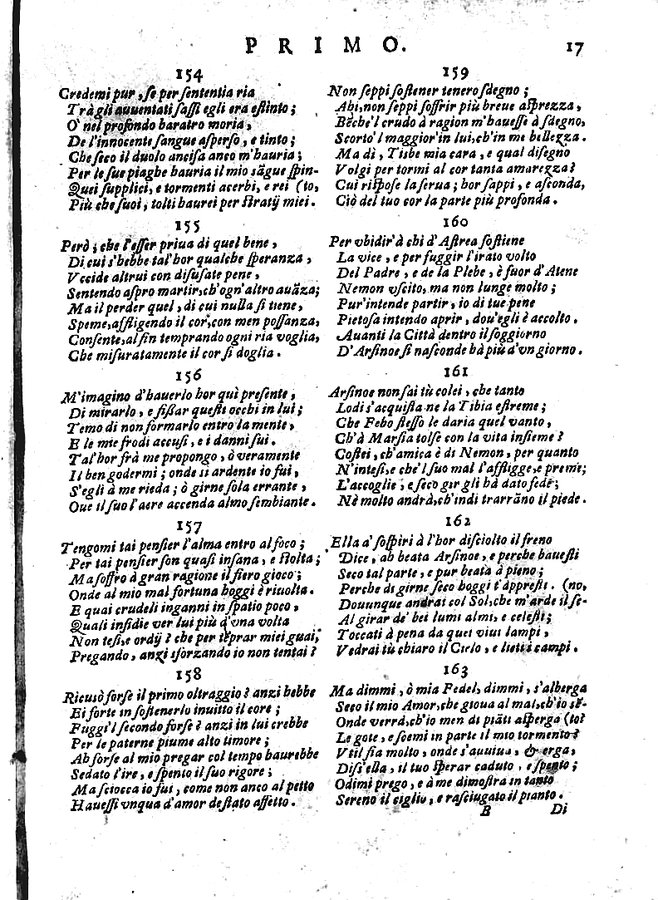 PRIMO. 17
154
Credemi pur, se per sententia ria
Trà gli auuentati sassi egli era estinto;
O' nel profondo baratro moria,
De l'innocente sangue asperso, e tinto;
Che seco il duolo ancisa anco m'hauria;
Per le sue piaghe hauria il mio sãgue spin-
Quei supplici, e tormenti acerbi, e rei (to,
Più che suoi, tolti haurei per stratij miei.
155
Però; che l'esser priua di quel bene,
Di cui s'hebbe tal'hor qualche speranza,
Vccide altrui con disusate pene,
Sentendo aspro martir, ch'ogn'altro auãza;
Ma il perder quel, di cui nulla si tiene,
Speme, affligendo il cor, con men possanza,
Consente, al fin temprando ogni ria voglia,
Che misuratamente il cor si doglia.
156
M'imagino d'hauerlo hor quì presente,
Di mirarlo, e fißar questi occhi in lui;
Temo di non formarlo entro la mente,
E le mie frodi accusi, e i danni sui.
Tal'hor frà me propongo, ò veramente
Il ben godermi; onde sì ardente io fui,
S'egli à me rieda; ò girne sola errante,
Oue il suo l'aere accenda almo sembiante.
157
Tengomi tai pensier l'alma entro al foco;
Per tai pensier son quasi insana, e stolta;
Ma soffro à gran ragione il fiero gioco;
Onde al mio mal fortuna hoggi è riuolta.
E quai crudeli inganni in spatio poco,
Quali insidie ver lui più d'vna volta
Non tesi, e ordij? che per tẽprar miei guai,
Pregando, anzi sforzando io non tentai?
158
Ricusò forse il primo oltraggio? anzi hebbe
Ei forte in sostenerlo inuitto il core;
Fuggi'l secondo forse? anzi in lui crebbe
Per le paterne piume alto timore;
Ab forse al mio pregar col tempo haurebbe
Sedato l'ire, e spento il suo rigore;
Ma sciocca io fui, come non anco al petto
Hauessi vnqua d'amor destato affetto.
159
Non seppi sostener tenero sdegno;
Ahi, non seppi soffrir più breue asprezza,
Bẽche'l crudo à ragion m'hauesse à sdegno,
Scorto'l maggior'in lui, ch'in me bellezza.
Ma dì, Tisbe mia cara, e qual disegno
Volgi per tormi al cor tanta amarezza?
Cui rispose la serua; hor sappi, e asconda,
Ciò del tuo cor la parte più profonda.
160
Per vbidir'à chi d'Astrea sostiene
La vice, e per fuggir l'irato volto
Del Padre, e de la Plebe, è fuor d'Atene
Nemon vscito, ma non lunge molto;
Pur'intende partir, io di tue pene
Pietosa intendo aprir, dou'egli è accolto.
Auanti la Città dentro il soggiorno
D'Arsinoe si nasconde hà più d'vn giorno.
161
Arsinoe non sai tù colei, che tanto
Lodi s'acquista ne la Tibia estreme;
Che Febo stesso le daria quel vanto,
Ch'à Marsia tolse con la vita insieme?
Costei, ch'amica è di Nemon, per quanto
N'intesi, e che'l suo mal l'affligge, e preme;
L'accoglie, e seco gir gli hà dato fede;
Nè molto andrà, ch'indi trarrãno il piede.
162
Ella a' sospiri à l'hor disciolto il freno
Dice, ah beata Arsinoe, e perche hauesti
Seco tal parte, e pur beata à pieno;
Perche di girne seco hoggi t'appresti. (no,
Dounque andrai col Sol, che m'arde il se-
Al girar de' bei lumi almi, e celesti;
Toccati à pena da quei viui lampi,
Vedrai tù chiaro il Cielo, e lieti i campi.
163
Ma dimmi, ò mia Fedel, dimmi, s'alberga
Seco il mio Amor, che gioua al mal, ch'io sẽ-
Onde verrà, ch'io men di piãti asperga (to?
Le gote, e scemi in parte il mio tormento?
Vtil sia molto, onde s'auuiua, & erga,
Diss'ella, il tuo sperar caduto, e spento;
Odimi prego, e à me dimostra in tanto
Sereno il ciglio, e rasciugato il pianto.
B Di